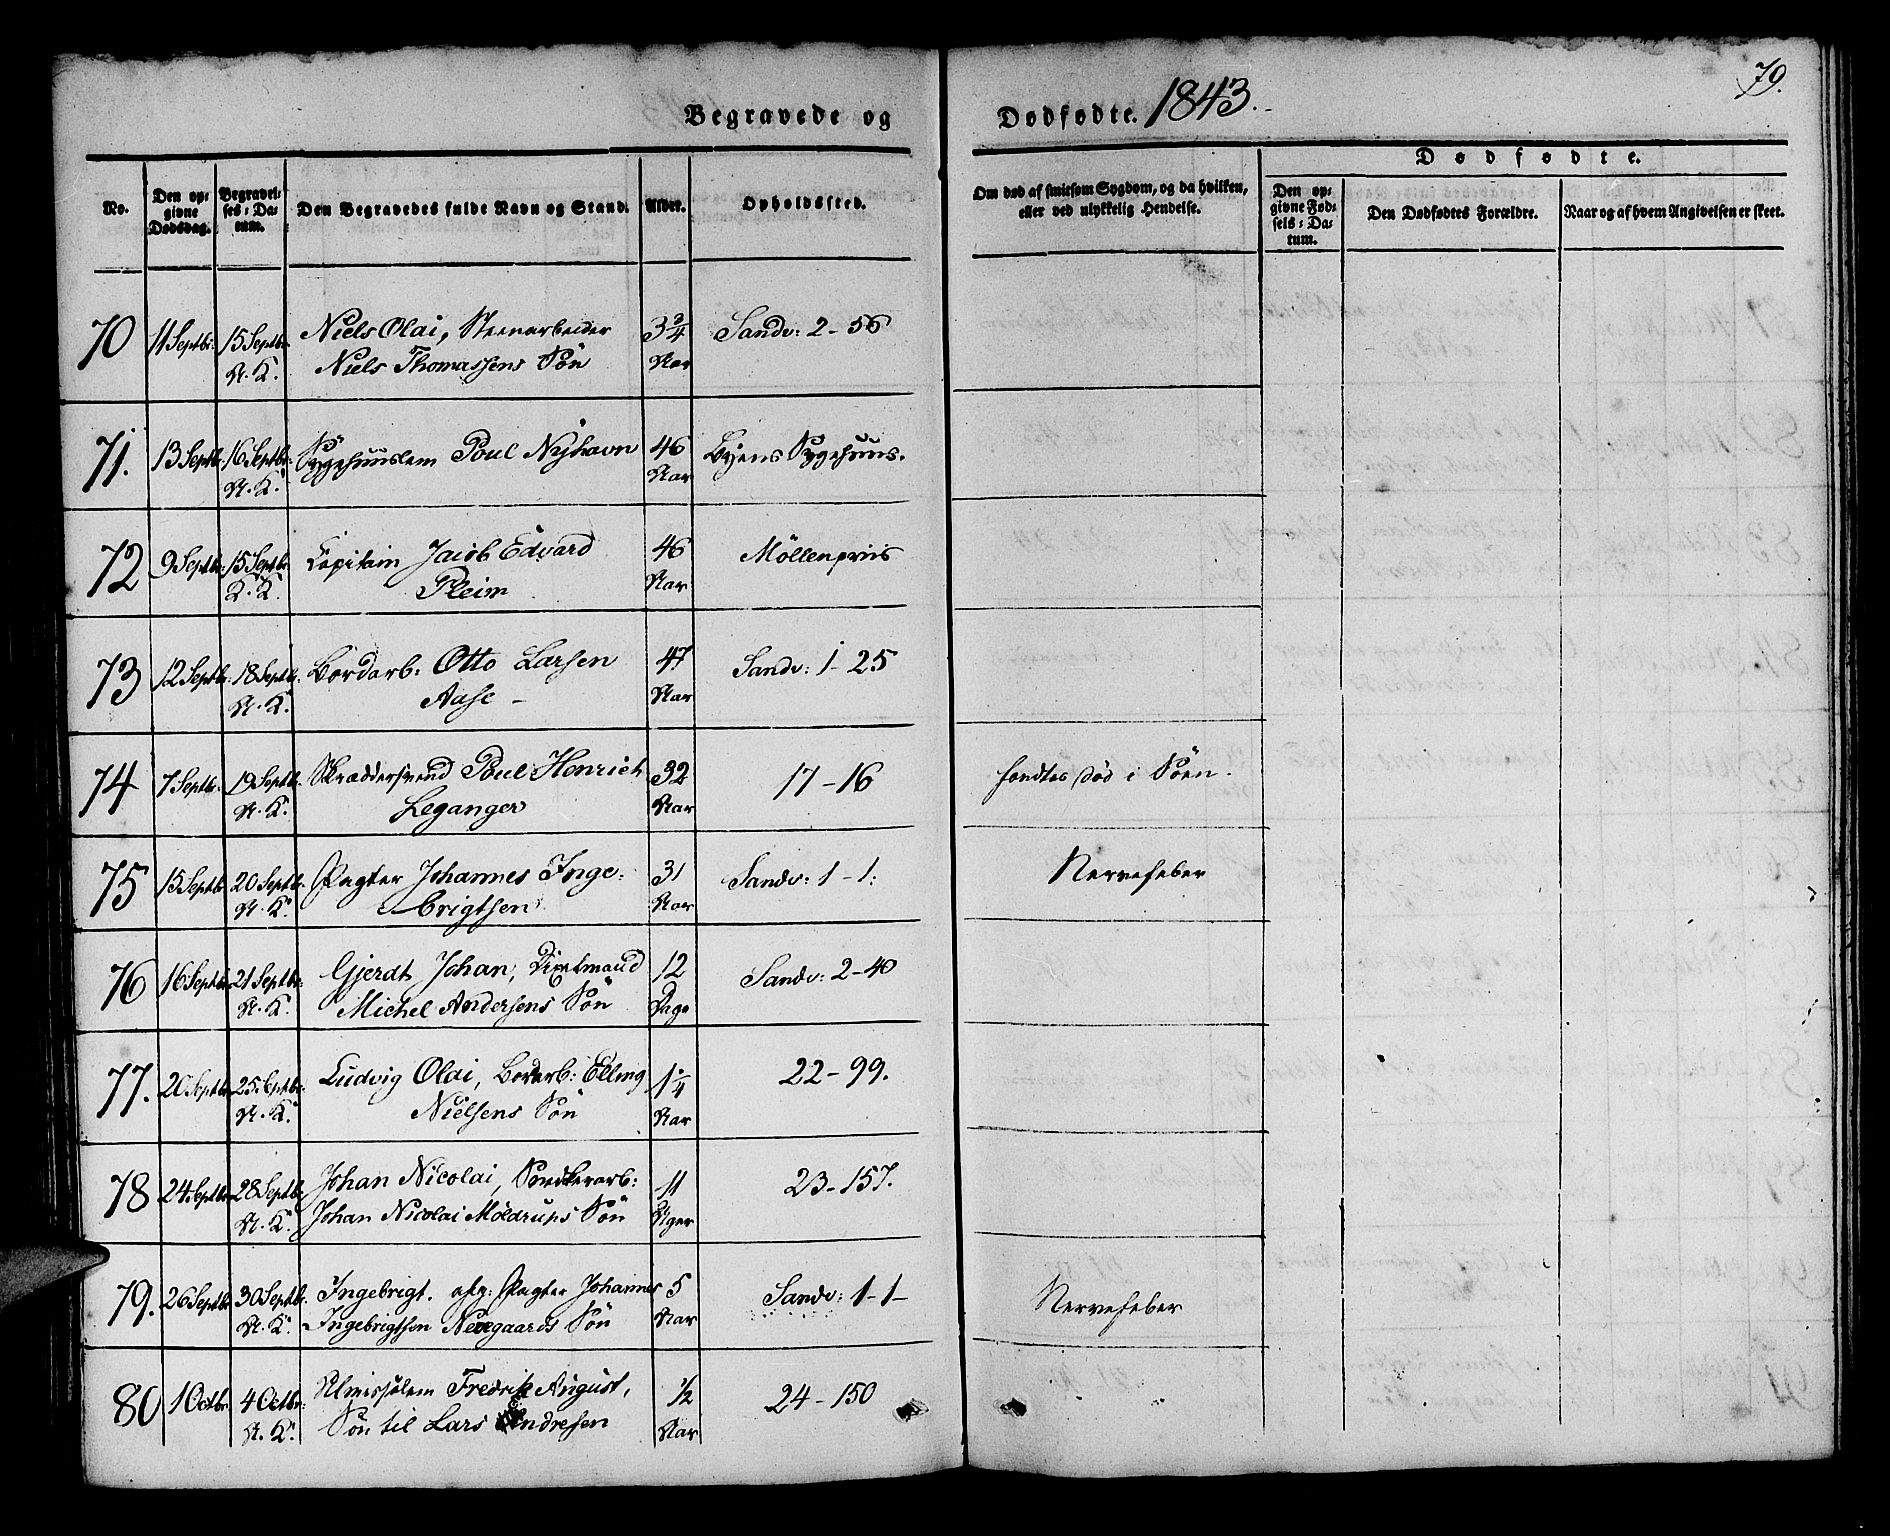 79.
Begravede og Dødfødte. 1843.
No. Den opgivne Dødsdag. Begravelses-Datum. Den Begravedes fulde Navn og Stand. Alder. Opholdssted. Om død af smitsom Sygdom, og da hvilken, eller ved ulykkelig Hendelse.
Dødfødte.
Den opgivne Fødsels-Datum. Den Dødfødtes Forældre. Naar og af hvem Angivelsen er skeet.
70 11 Septbr: 15 Septbr. Niels Olai, Steenarbeider 3 3/4 Sandv: 2-56
N. K. Niels Thomassens Søn Aar
71. 13 Septbr. 16 Septbr: Sygehuuslem Poul Nyhavn 46 Byens Sygehuus.
N. K. Aar
72 9 Septbr. 15 Septbr. Capitain Jacob Edvard 46 Möllenpriis
K. K. Pleim Aar
73 12 Septbr. 18 Septbr. Bordarb: Otto Larsen 47 Sandv: 1-25
N. K. Aase - Aar
74 7 Septbr. 19 Septbr. Skræddersvend Poul Henrich 32 17-16 fandtes död i Söen.
N. K. Leganger Aar
75 15 Septbr 20 Septbr. Pagter Johannes Inge- 31 Sandv: 1-1: Nervefeber
N. K. brigtsen Aar
76 16 Septbr. 21 Septbr: Gjerdt Johan, 12 Sandv: 2-40
N. K. Michel Andersens Sön Dage
77. 20 Septbr. 25 Septbr: Ludvig Olai, Bordarb: Elling 1 1/4 22-99.
N. K. Nielsens Sön Aar
78 24 Septbr. 28 Septbr Johan Nicolai, Snedkerarb: 11 23-157.
N. K. Johan Nicolai Möldrups Sön Uger
79. 26 Septbr 30 Septbr. Ingebrigt. afg: Pagter Johannes 5 Sandv: 1-1- Nervefeber
N. K. Ingebrigtsen Sön Aar
80 1 Octbr. 4 Octbr: Almisselem Fredrik August, 1/2 24-150
N. K. Sön til Lars Andresen Aar